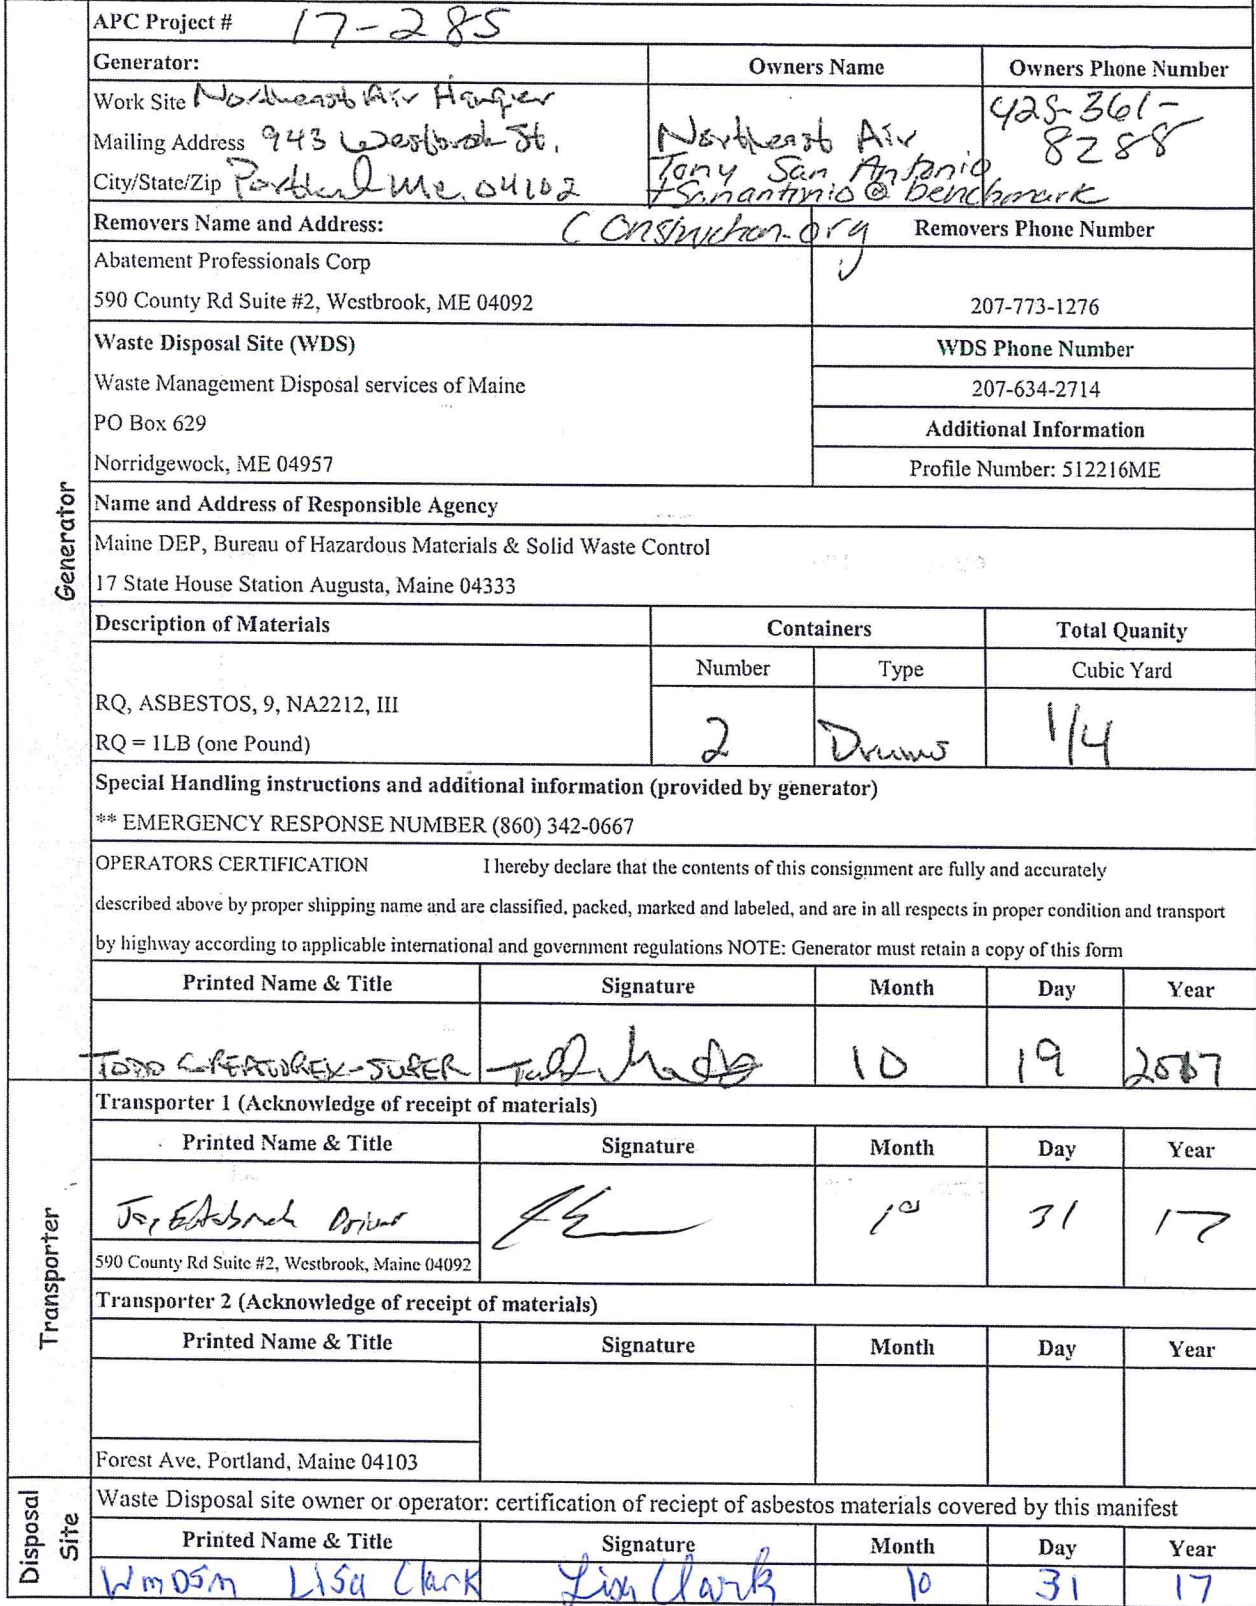 APC Project # 17-285
Generator: Owners Name Owners Phone Number
Work Site Northeast Air Hanger
Mailing Address 943 Westbrook St.
City/State/Zip Portland Me. 04102
Northeast Air
Tony San Antonio
tsanantonio @ benchmark
Construction.org
425-361-
8288
Removers Name and Address: Removers Phone Number
Abatement Professionals Corp
590 County Rd Suite #2, Westbrook, ME 04092 207-773-1276
Waste Disposal Site (WDS) WDS Phone Number
Waste Management Disposal services of Maine 207-634-2714
PO Box 629 Additional Information
Norridgewock, ME 04957 Profile Number: 512216ME
Name and Address of Responsible Agency
Maine DEP, Bureau of Hazardous Materials & Solid Waste Control
17 State House Station Augusta, Maine 04333
Description of Materials Containers Total Quanity
Number Type Cubic Yard
RQ, ASBESTOS, 9, NA2212, III
RQ = 1LB (one Pound) 2 Drums 1/4
Special Handling instructions and additional information (provided by generator)
** EMERGENCY RESPONSE NUMBER (860) 342-0667
OPERATORS CERTIFICATION I hereby declare that the contents of this consignment are fully and accurately
described above by proper shipping name and are classified, packed, marked and labeled, and are in all respects in proper condition and transport
by highway according to applicable international and government regulations NOTE: Generator must retain a copy of this form
Printed Name & Title Signature Month Day Year
TODD -SUPER 10 19 2017
Transporter 1 (Acknowledge of receipt of materials)
Printed Name & Title Signature Month Day Year
Driver 10 31 17
590 County Rd Suite #2, Westbrook, Maine 04092
Transporter 2 (Acknowledge of receipt of materials)
Printed Name & Title Signature Month Day Year
Forest Ave, Portland, Maine 04103
Waste Disposal site owner or operator: certification of reciept of asbestos materials covered by this manifest
Printed Name & Title Signature Month Day Year
WMDSM Lisa Clark Lisa Clark 10 31 17
Generator
Transporter
Disposal
Site